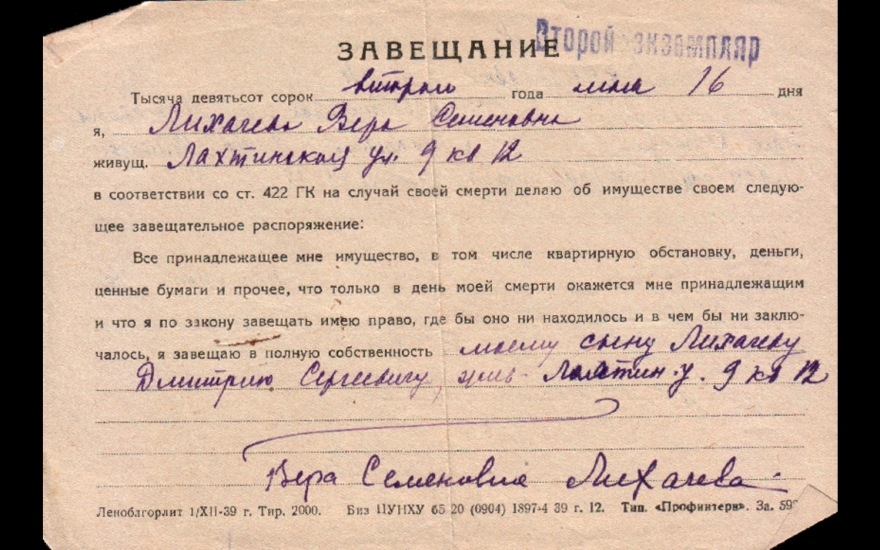 Второй экземпляр
ЗАВЕЩАНИЕ
Тысяча девятьсот сорок втором года мая 16 дня
я, Лихачева Вера Семеновна
живущ. Лахтинская ул. 9 кв 12
в соответствии со ст. 422 ГК на случай своей смерти делаю об имуществе своем следую-
щее завещательное распоряжение:
Все принадлежащее мне имущество, в том числе квартирную обстановку, деньги,
ценные бумаги и прочее, что только в день моей смерти окажется мне принадлежащим
и что я по закону завещать имею право, где бы оно ни находилось и в чем бы ни заклю-
чалось, я завещаю в полную собственность моему сыну Лихачеву
Дмитрию Сергеевичу, Лахтин. у. 9 кв 12
Вера Семеновна Лихачева
Леноблгорлит 1/XII-39 г. Тир. 2000. Биз ЦУНХУ 65 20 (0904) 1897-4 39 г. 12. Тип. «Профинтерн». За.